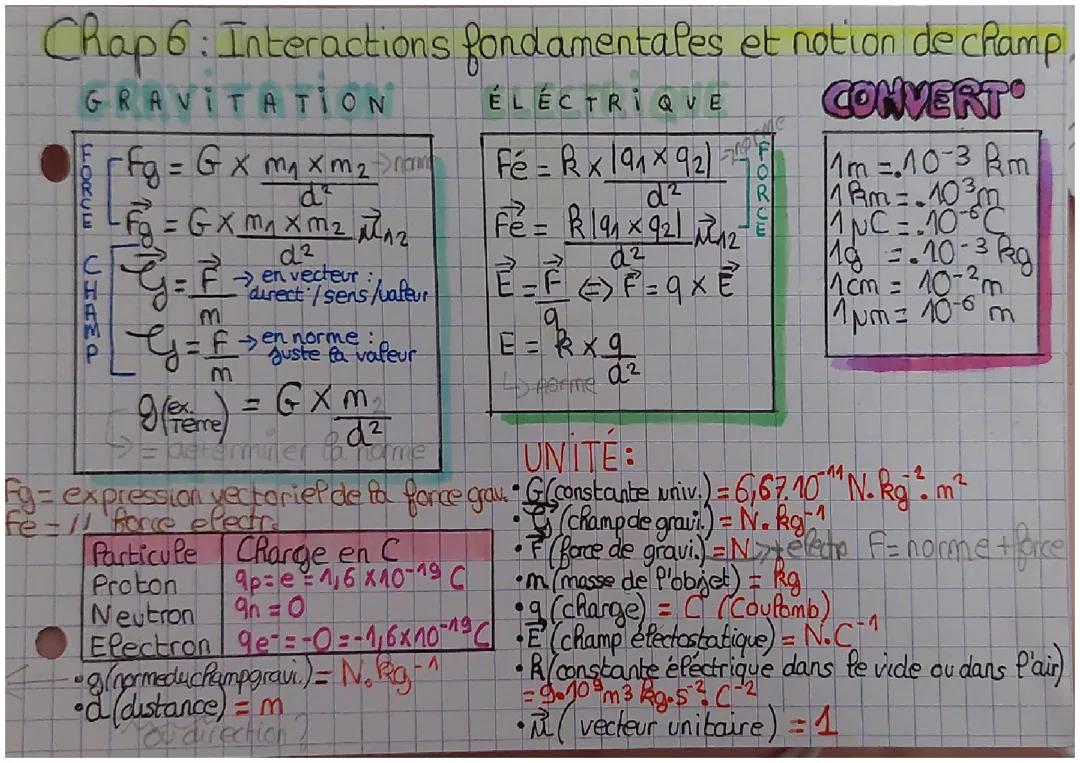 Chap 6 : Interactions fondamentales et notion de champ
GRAVITATION
FORCE
Fg = G × m₁ × m₂ / d² → norme
F⃗g = G × m₁ × m₂ / d² u⃗₁₂
CHAMP
G⃗ = F⃗ / m → en vecteur : direct°/sens/valeur
G = F / m → en norme : juste la valeur
g (ex. Terre) = G × m / d²
↳ = determiner la norme
ÉLÉCTRIQUE
FORCE
Fé = k × |q₁ × q₂| / d² → norme
F⃗é = k |q₁ × q₂| / d² u⃗₁₂
E⃗ = F⃗ / q ⇔ F⃗ = q × E⃗
E = k × q / d²
↳ norme
CONVERT°
1m = .10⁻³ km
1km = .10³m
1µC = .10⁻⁶C
1g = .10⁻³ kg
1cm = 10⁻²m
1µm = 10⁻⁶ m
Fg = expression vectoriel de la force grav.
Fé = // force electr.
Particule Charge en C
Proton qp = e = 1,6 ×10⁻¹⁹ C
Neutron qn = 0
Electron qe⁻ = -0 = -1,6×10⁻¹⁹C
• g (norme du champ gravi.) = N.kg⁻¹
• d (distance) = m
ou direction ?
UNITÉ :
• G (constante univ.) = 6,67.10⁻¹¹ N.kg⁻².m²
• G⃗ (champ de gravi.) = N.kg⁻¹
• F⃗ (force de gravi.) = N → + electro F = norme + force
• m (masse de l'objet) = kg
• q (charge) = C (Coulomb)
• E⃗ (champ éléctostatique) = N.C⁻¹
• k (constante éléctrique dans le vide ou dans l'air)
= 9.10⁹ m3 kg.s⁻².C⁻²
• u⃗ (vecteur unitaire) = 1